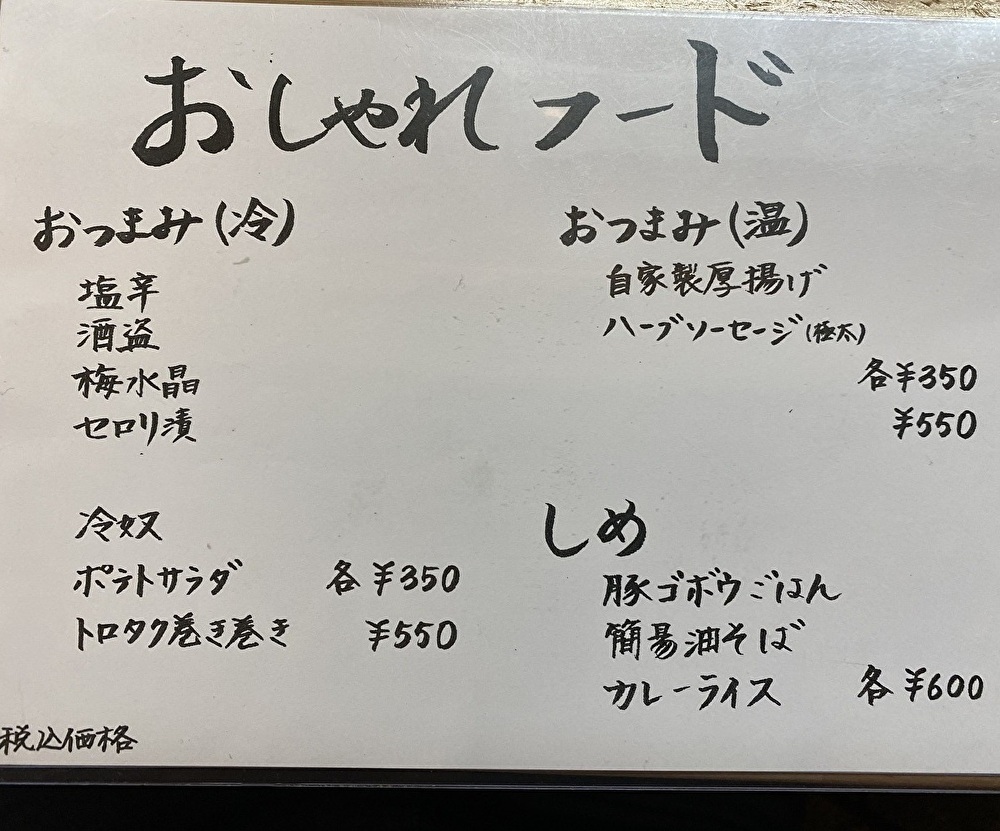 おしゃれフード
おつまみ(冷)
塩辛
酒盗
梅水晶
セロリ漬
冷奴
ポテトサラダ 各¥350
トロタク巻き巻き ¥550
税込価格
おつまみ(温)
自家製厚揚げ
ハーブソーセージ(極太)
各¥350
¥550
しめ
豚ゴボウごはん
簡易油そば
カレーライス 各¥600